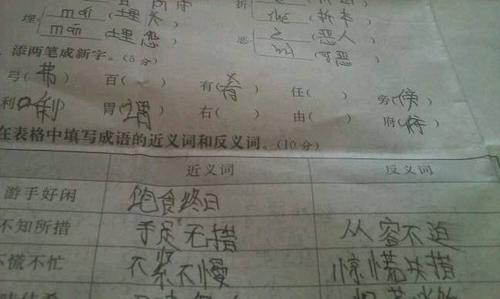 埋 mái (埋木) 折 shé (折本)
mán (埋怨) 恶 è (恶人)
wù (可恶)
添两笔成新字。(5分)
弓(弗) 百( ) 有(肴) 任( ) 旁(傍)
利(俐) 胃(谓) 右( ) 由( ) 府(俯)
在表格中填写成语的近义词和反义词。(10分)
近义词 反义词
游手好闲 饱食终日
不知所措 手足无措 从容不迫
不慌不忙 不紧不慢 惊慌失措